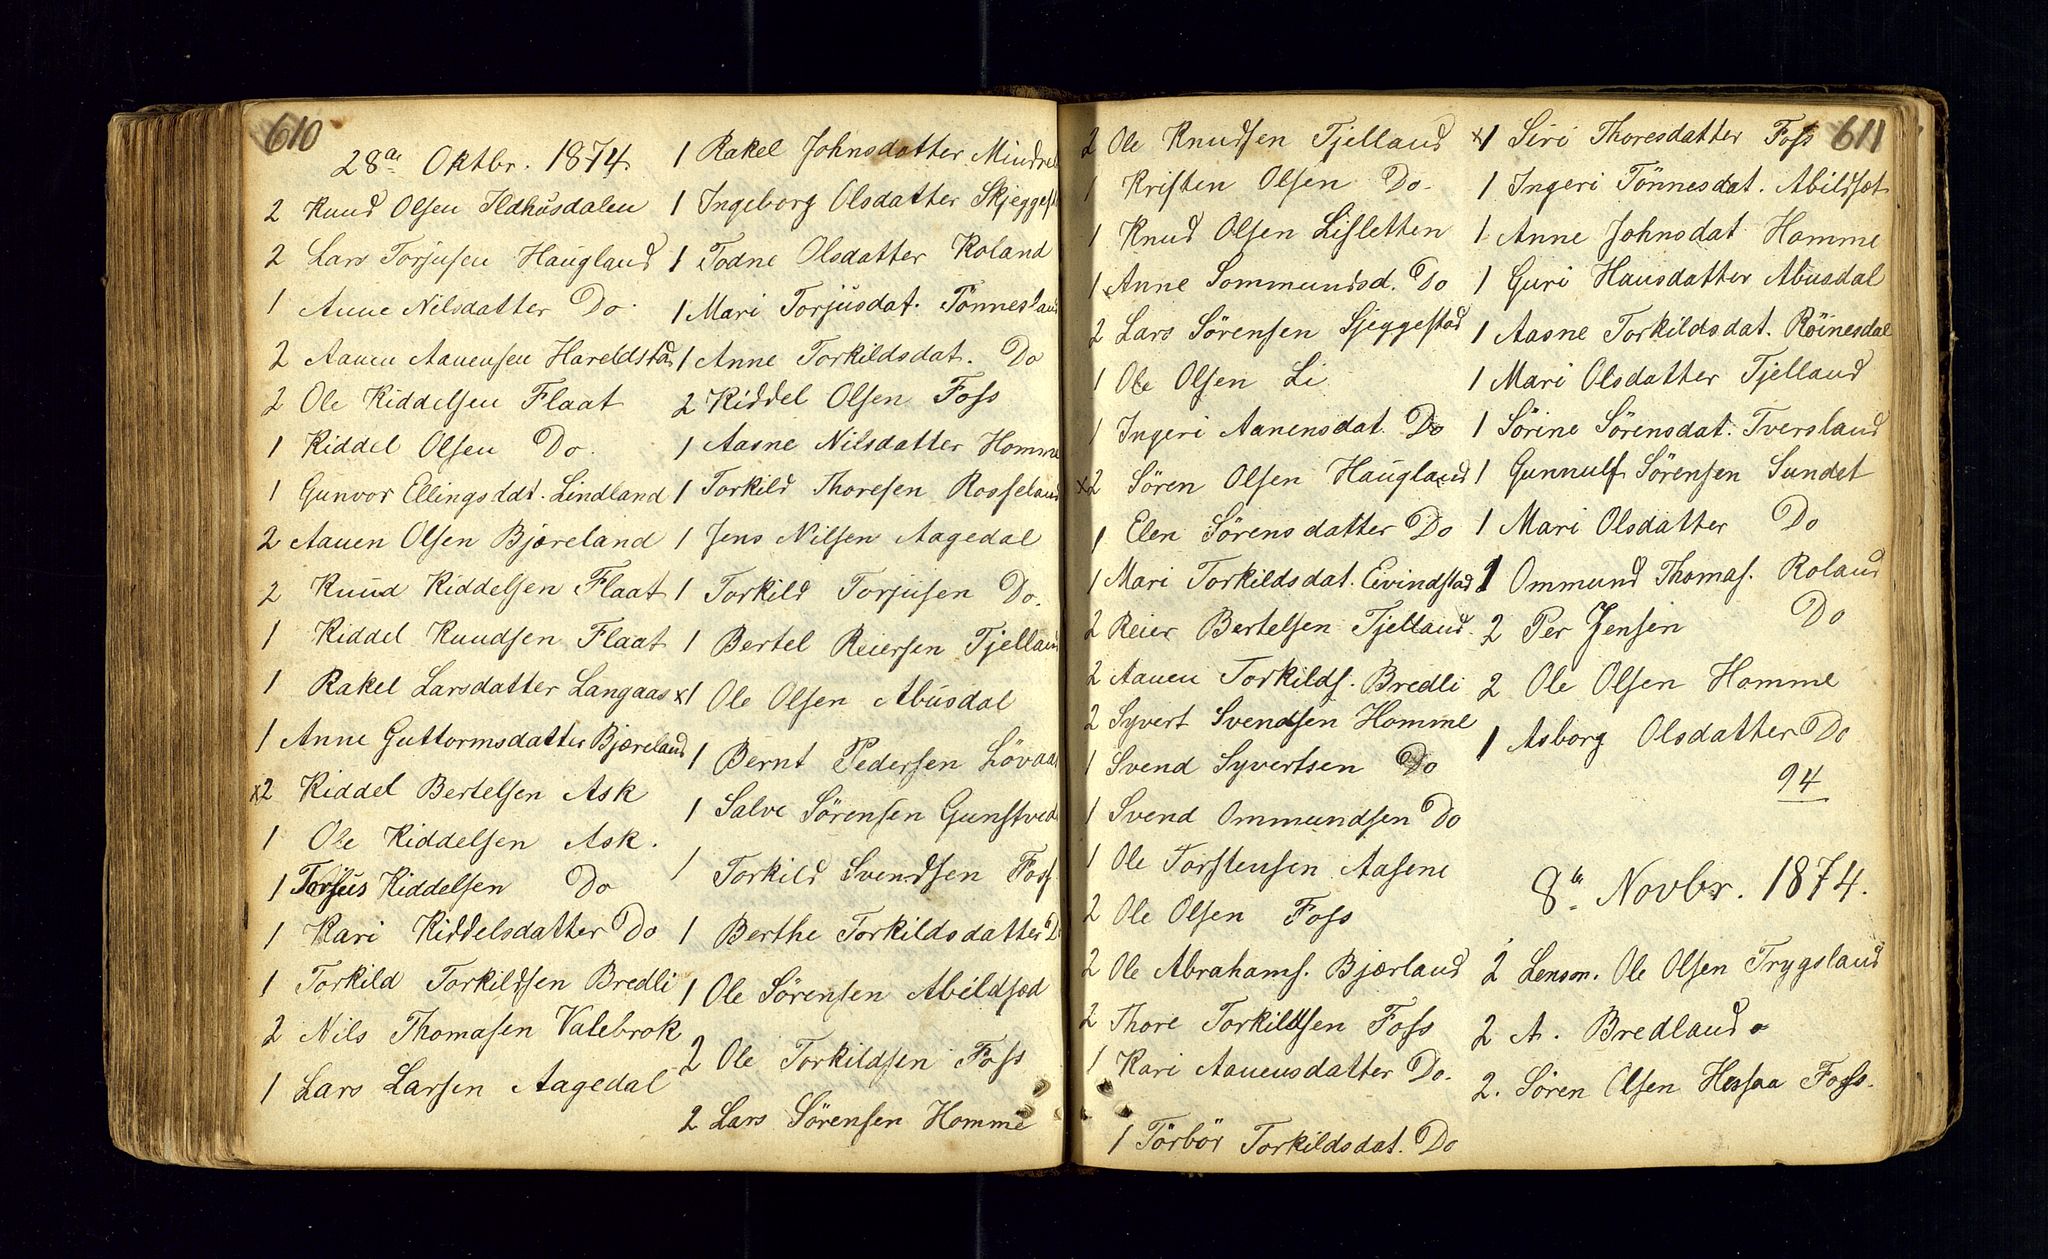 610
28de Oktbr. 1874.
2 Knud Olsen Ildhusdalen
2 Lars Torjusen Haugland
1 Anne Nilsdatter Do.
2 Aanen Aanensen Hareldstad
2 Ole Kiddelsen Flaat
1 Kiddel Olsen Do.
1 Gunvor Ellingsddt. Lindland
2 Aanen Olsen Bjæreland
2 Knud Kiddelsen Flaat
1 Kiddel Knudsen Flaat
1 Rakel Larsdatter Langaas
1 Anne Guttormsdatter Bjæreland
x2 Kiddel Bertelsen Ask
1 Ole Kiddelsen Ask.
1 Torjus Kiddelsen Do
1 Kari Kiddelsdatter Do
1 Torkild Torkildsen Bredli
2 Nils Thomasen Valebrok
1 Lars Larsen Aagedal
1 Rakel Johnsdatter
1 Ingeborg Olsdatter
1 Todne Olsdatter Roland
1 Mari Torjusdat. Tönnesland
1 Anne Torkildsdat. Do
2 Kiddel Olsen Foss
1 Aasne Nilsdatter Homme
1 Torkild Thoresen Rosseland
1 Jens Nilsen Aagedal
1 Torkild Torjusen Do.
1 Bertel Reiersen Tjelland
x1 Ole Olsen Abusdal
1 Bernt Pedersen Lövaas
1 Salve Sörensen
1 Torkild Svendsen Foss
1 Berthe Torkildsdatter D
1 Ole Sörensen Abildsod
2 Ole Torkildsen Foss
2 Lars Sörensen Homme
2 Ole Knudsen Tjelland
1 Kristen Olsen Do.
1 Knud Olsen Lisletten
1 Anne Sommundsd. Do
2 Lars Sörensen Sjeggestad
1 Ole Olsen Li
1 Ingeri Aanensdat. Do
x2 Sören Olsen Haugland
1 Elen Sörensdatter Do
1 Mari Torkildsdat. Eivindstad
2 Reier Bertelsen Tjelland.
2 Aanen Torkilds. Bredli
2 Syvert Svendsen Homme
1 Svend Syvertsen Do
1 Svend Ommundsen Do
1 Ole Torstensen Aasene
2 Ole Olsen Foss
2 Ole Abrahams. Bjærland
2 Thore Torkildsen Foss
1 Kari Aanensdatter Do.
1 Törbör Torkildsdat. Do
611
x1 Siri Thoresdatter Foss
1 Ingeri Tönnesdat. Abildsot
1 Anne Johnsdat Homme
1 Guri Hansdatter Abusdal
1 Aasne Torkildsdat. Röinesdal
1 Mari Olsdatter Tjelland
1 Sörine Sörensdat. Tversland
1 Gunnulf Sörensen Sundet
1 Mari Olsdatter Do
1 Ommund Thomas. Roland
2 Per Jensen Do
2 Ole Olsen Homme
1 Asborg Olsdatter Do
94
8de Novbr. 1874.
2 Lensm. Ole Olsen Trygsland
2 A. Bredland
2. Sören Olsen Hessaa Foss.